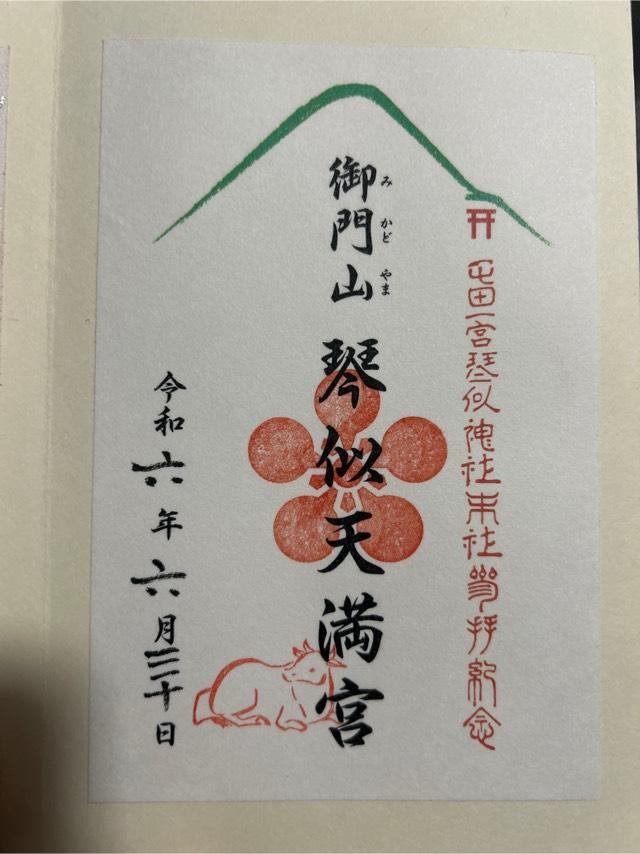 屯田一宮琴似神社末社参拝紀念
御門山 琴似天満宮
みかどやま
令和六年六月三十日